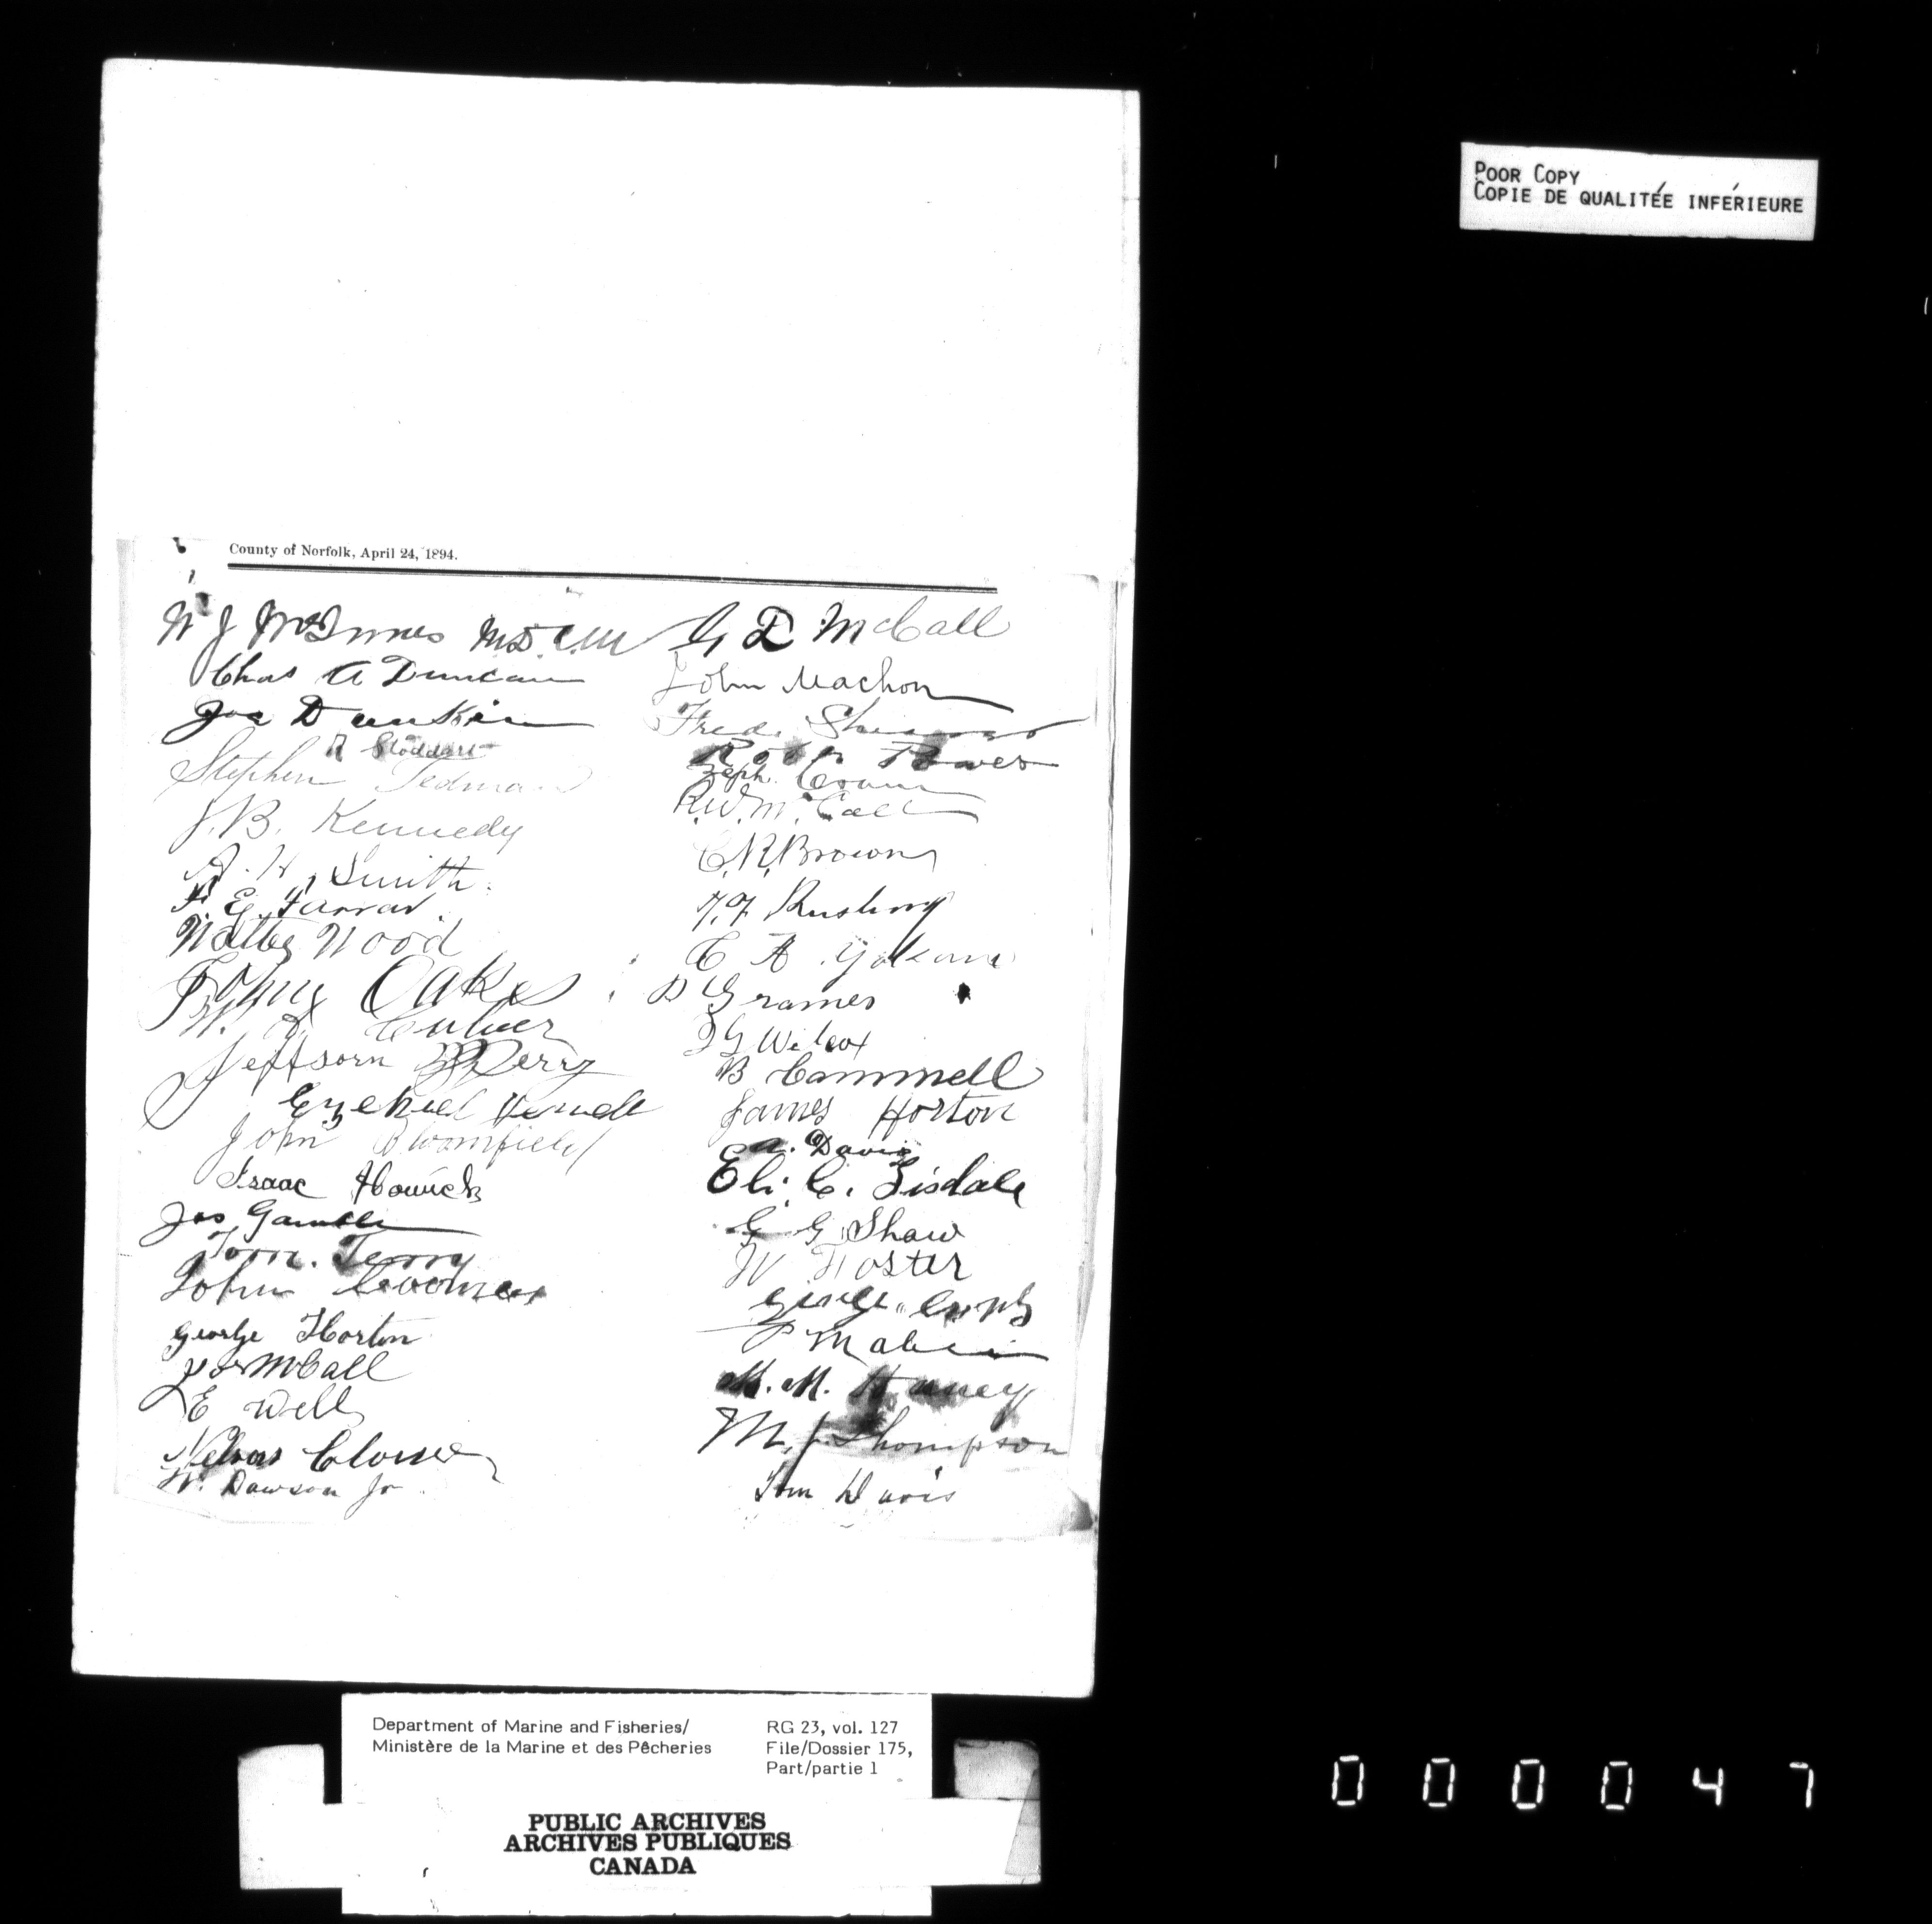 POOR COPY
COPIE DE QUALITÉE INFÉRIEURE
County of Norfolk, April 24, 1894.
W J McInnes M.D. C.M
Chas A Duncan
Jos Dunkin
R Stoddart
Stephen Tedman
J. B. Kennedy
A. H. Smith
F. E. Farrar
Walter Wood
Oakes
W. Culver
Jeffsorn Berry
Ezekiel
John Bloomfield
Isaac Howick
Jas Gamble
Tom. Terry
John
George Horton
McCall
E Well
Nelson Clouse
W. Dawson Jr
G D McCall
John Machon
Fred.
Robt Power
Zeph.
R. W. McCall
C. R. Brown
Rushing
C A
D Grames
Wilcox
B Cammell
James Horton
A. Davis
Eli. C. Tisdale
G Shaw
W Foster
P Mabee
M. M.
M. J. Thompson
Tom Davis
Department of Marine and Fisheries/
Ministère de la Marine et des Pêcheries
RG 23, vol. 127
File/Dossier 175,
Part/partie 1
PUBLIC ARCHIVES
ARCHIVES PUBLIQUES
CANADA
000047